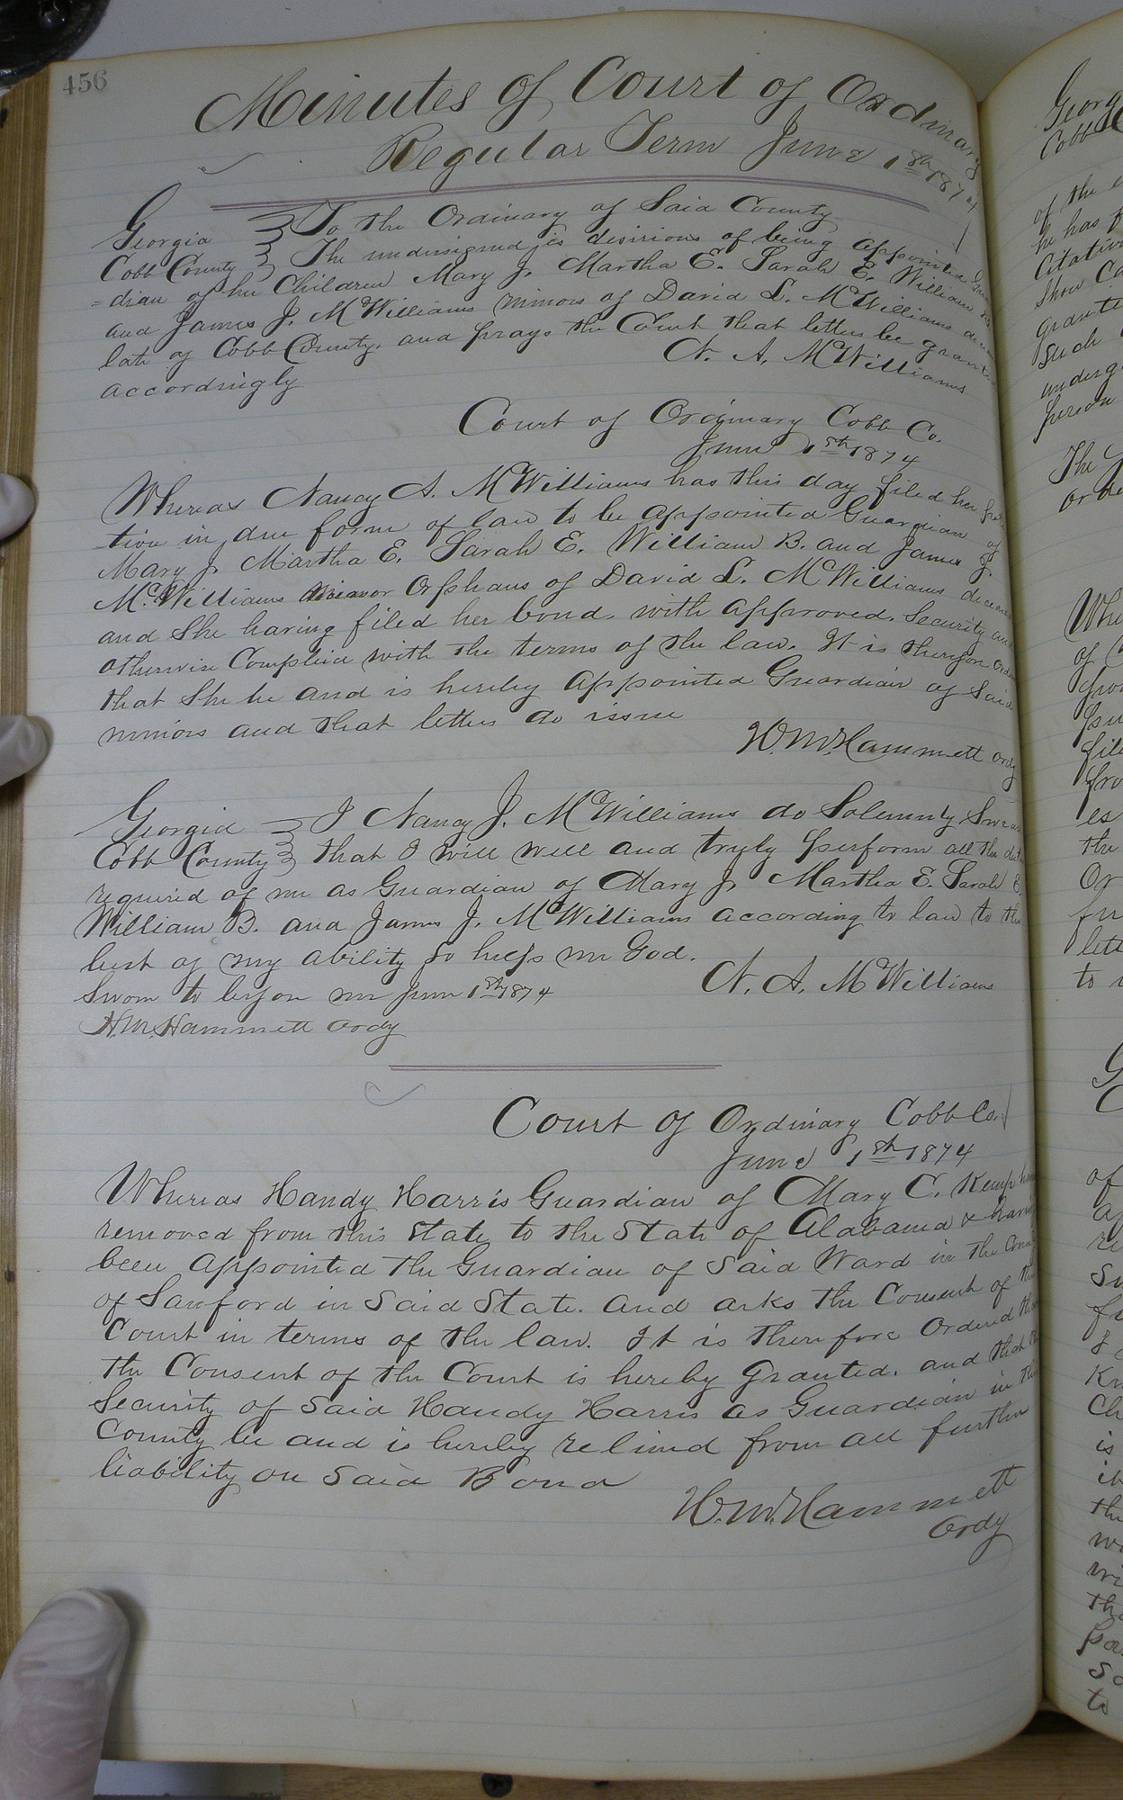 456
Minutes of Court of Ordinary
Regular Term June 1st 1874
Georgia } To the Ordinary of Said County
Cobb County } The undersigned is desirious of being appointed Guar
=dian of her Children Mary J. Martha E. Sarah E. William B.
and James J. McWilliams minors of David L. McWilliams
late of Cobb County. and prays the Court that letters be granted
accordingly
N. A. McWilliams
Court of Ordinary Cobb Co.
June 1st 1874
Whereas Nancy A. McWilliams has this day filed her
=tion in due form of law to be appointed Guardian of
Mary J. Martha E. Sarah E. William B. and James J.
McWilliams Minor Orphans of David L. McWilliams
and She having filed her bond. with approved. Security and
otherwise Complied with the terms of the law. It is therefore
that She be and is hereby appointed Guardian of Said
minors and that letters do issue
H. M. Hammett Ordy
Georgia } I Nancy J. McWilliams do Solemnly Swear
Cobb County } that I will well and truly perform all the
required of me as Guardian of Mary J. Martha E. Sarah E.
William B. and James J. McWilliams according to law to the
best of my ability So help me God.
Sworn to before me June 1st 1874
N. A. McWilliams
H. M. Hammett Ordy
Court of Ordinary Cobb Co.
June 1st 1874
Whereas Handy Harris Guardian of Mary C. Kemp
removed from this State to the State of Alabama &
been appointed the Guardian of Said Ward in the
of Sanford in Said State. and asks the Consent of
Court in terms of the law. It is therefore Ordered
the Consent of the Court is hereby Granted. and that
Security of Said Handy Harris as Guardian in
County be and is hereby relived from all further
liability on Said Bond
H. M. Hammett
Ordy